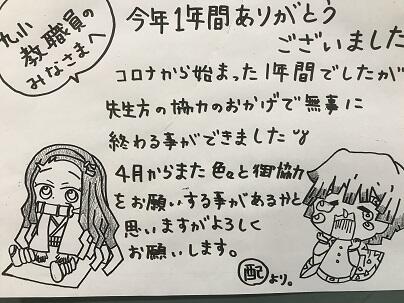 九小
教職員の
みなさまへ
今年1年間ありがとう
ございました
コロナから始まった1年間でしたが
先生方の協力のおかげで無事に
終わる事ができました
4月からまた色々と御協力
をお願いする事があるかと
思いますがよろしく
お願いします。
配より。